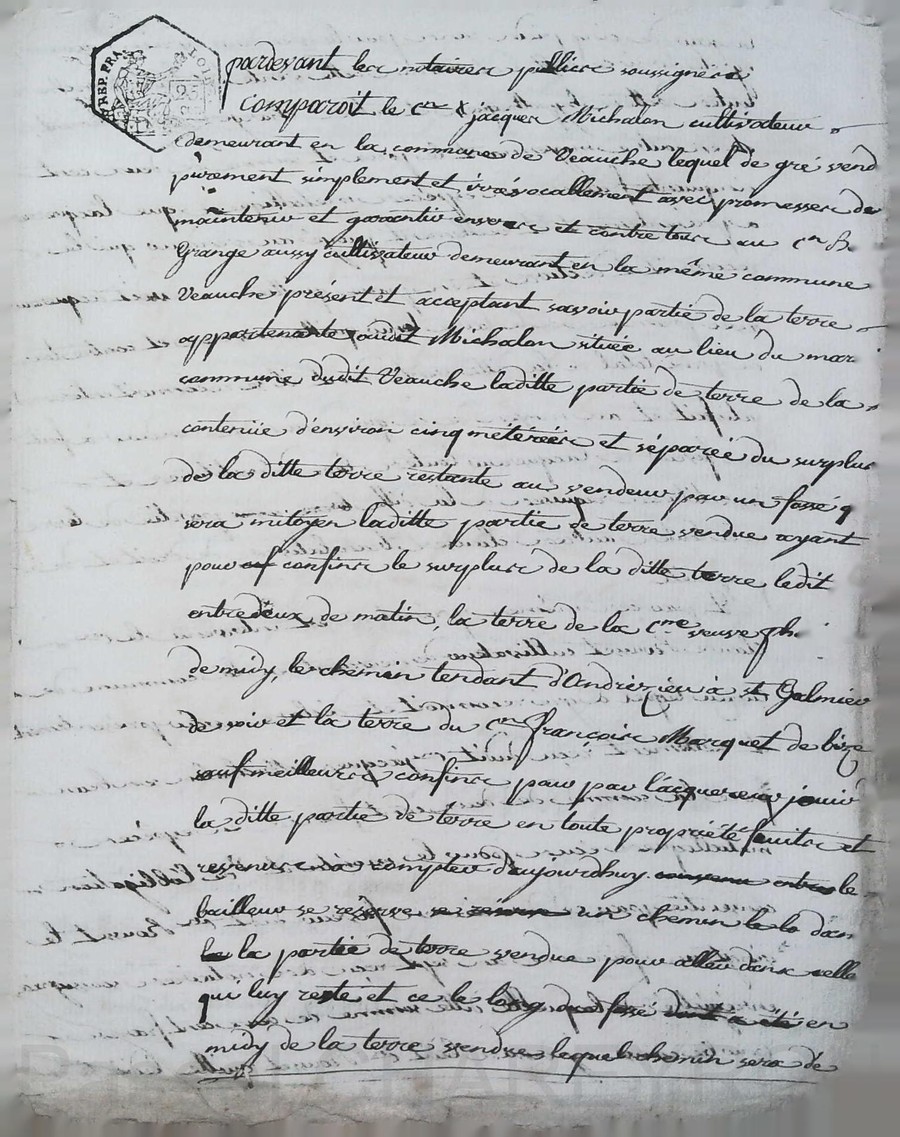 REP. FRA.
pardevant les notaires publics soussignés
comparoit le c.en jacques Michalon cultivateur
demeurant en la commune de Veauche lequel de gré vend
purement simplement et irrévocablement avec promesses de
maintenir et garantir envers et contre tous au c.en
Grange aussy cultivateur demeurant en la même commune
Veauche présent et acceptant savoir partie de la terre
appartenante audit Michalon située au lieu du mar
commune dudit Veauche laditte partie de terre de la
contenüe d'environ cinq métérées et séparée du surplus
de la ditte terre restante au vendeur par un fossé q
sera mitoyen laditte partie de terre vendue ayant
pour confins le surplus de la ditte terre ledit
entredeux de matin, la terre de la c.me veuve
de midy, le chemin tendant d'Andrezieu à st Galmier
de soir et la terre du c.en françois Marquet de bize
sauf meilleurs confins pour par l'acquereur jouir
la ditte partie de terre en toute propriété fruits et
revenus a compter d'aujourdhuy le
bailleur se reserve un chemin dan
la partie de terre vendue pour aller dans celle
qui luy reste et ce le long dud fossé en
midy de la terre vendue lequel chemin sera de